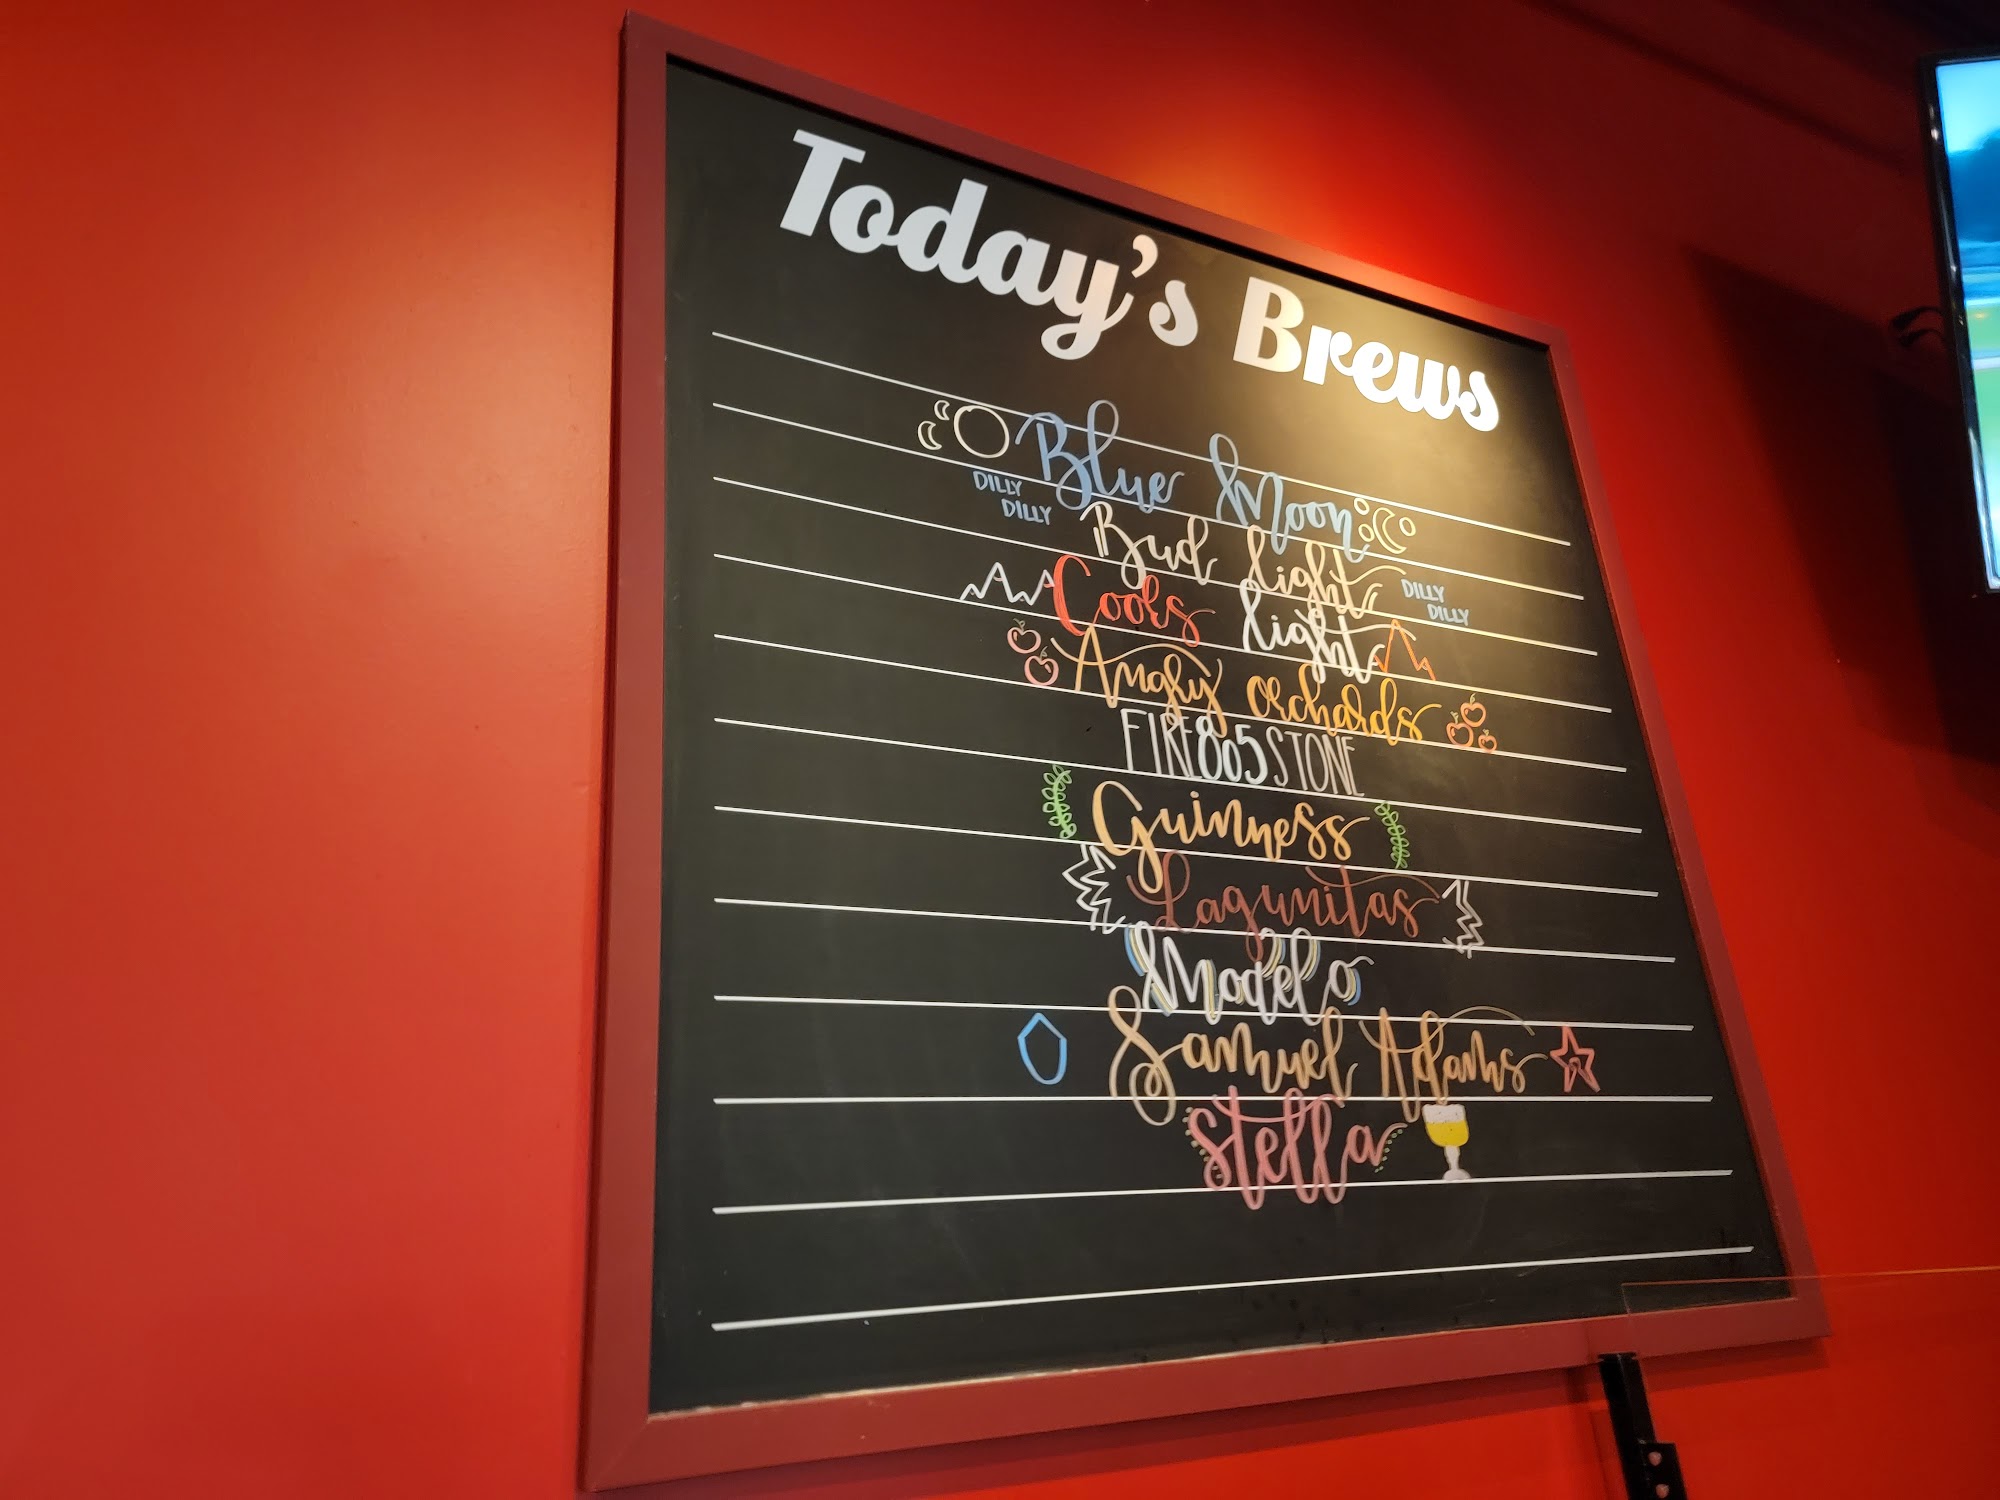 Today's Brews
Blue Moon
DILLY DILLY Bud light DILLY DILLY
Coors light
Angry Orchards
FIRE805STONE
Guinness
Lagunitas
Modelo
Samuel Adams
Stella